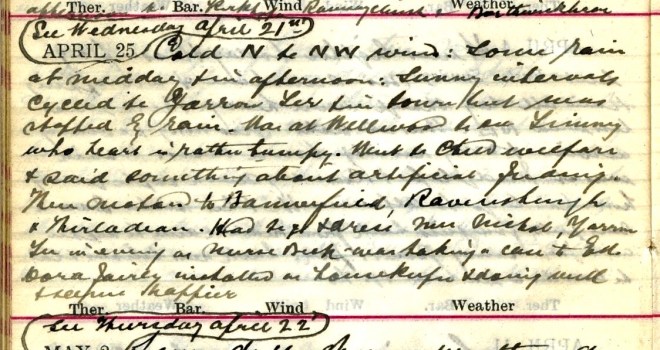 Ther. Bar. Wind Weather
See Wednesday April 21st
APRIL 25 Cold N to NW wind: Some rain
at midday & in afternoon: Sunny intervals
Cycled to Yarrow Ter & in town but was
stopped by rain. Was at Wellwood to see Jimmy
who heart is rather bumpy. Went to Child welfare
& said something about artificial feeding.
Then to Bannerfield, Ravensheugh
& Thirladean. Had to go & dress Mrs Nichol, Yarrow
Ter in evening as Nurse Beck was taking a case to Ed.
Dora installed as housekeeper & doing well
& seems happier
Ther. Bar. Wind Weather
See Thursday April 22
MAY 2